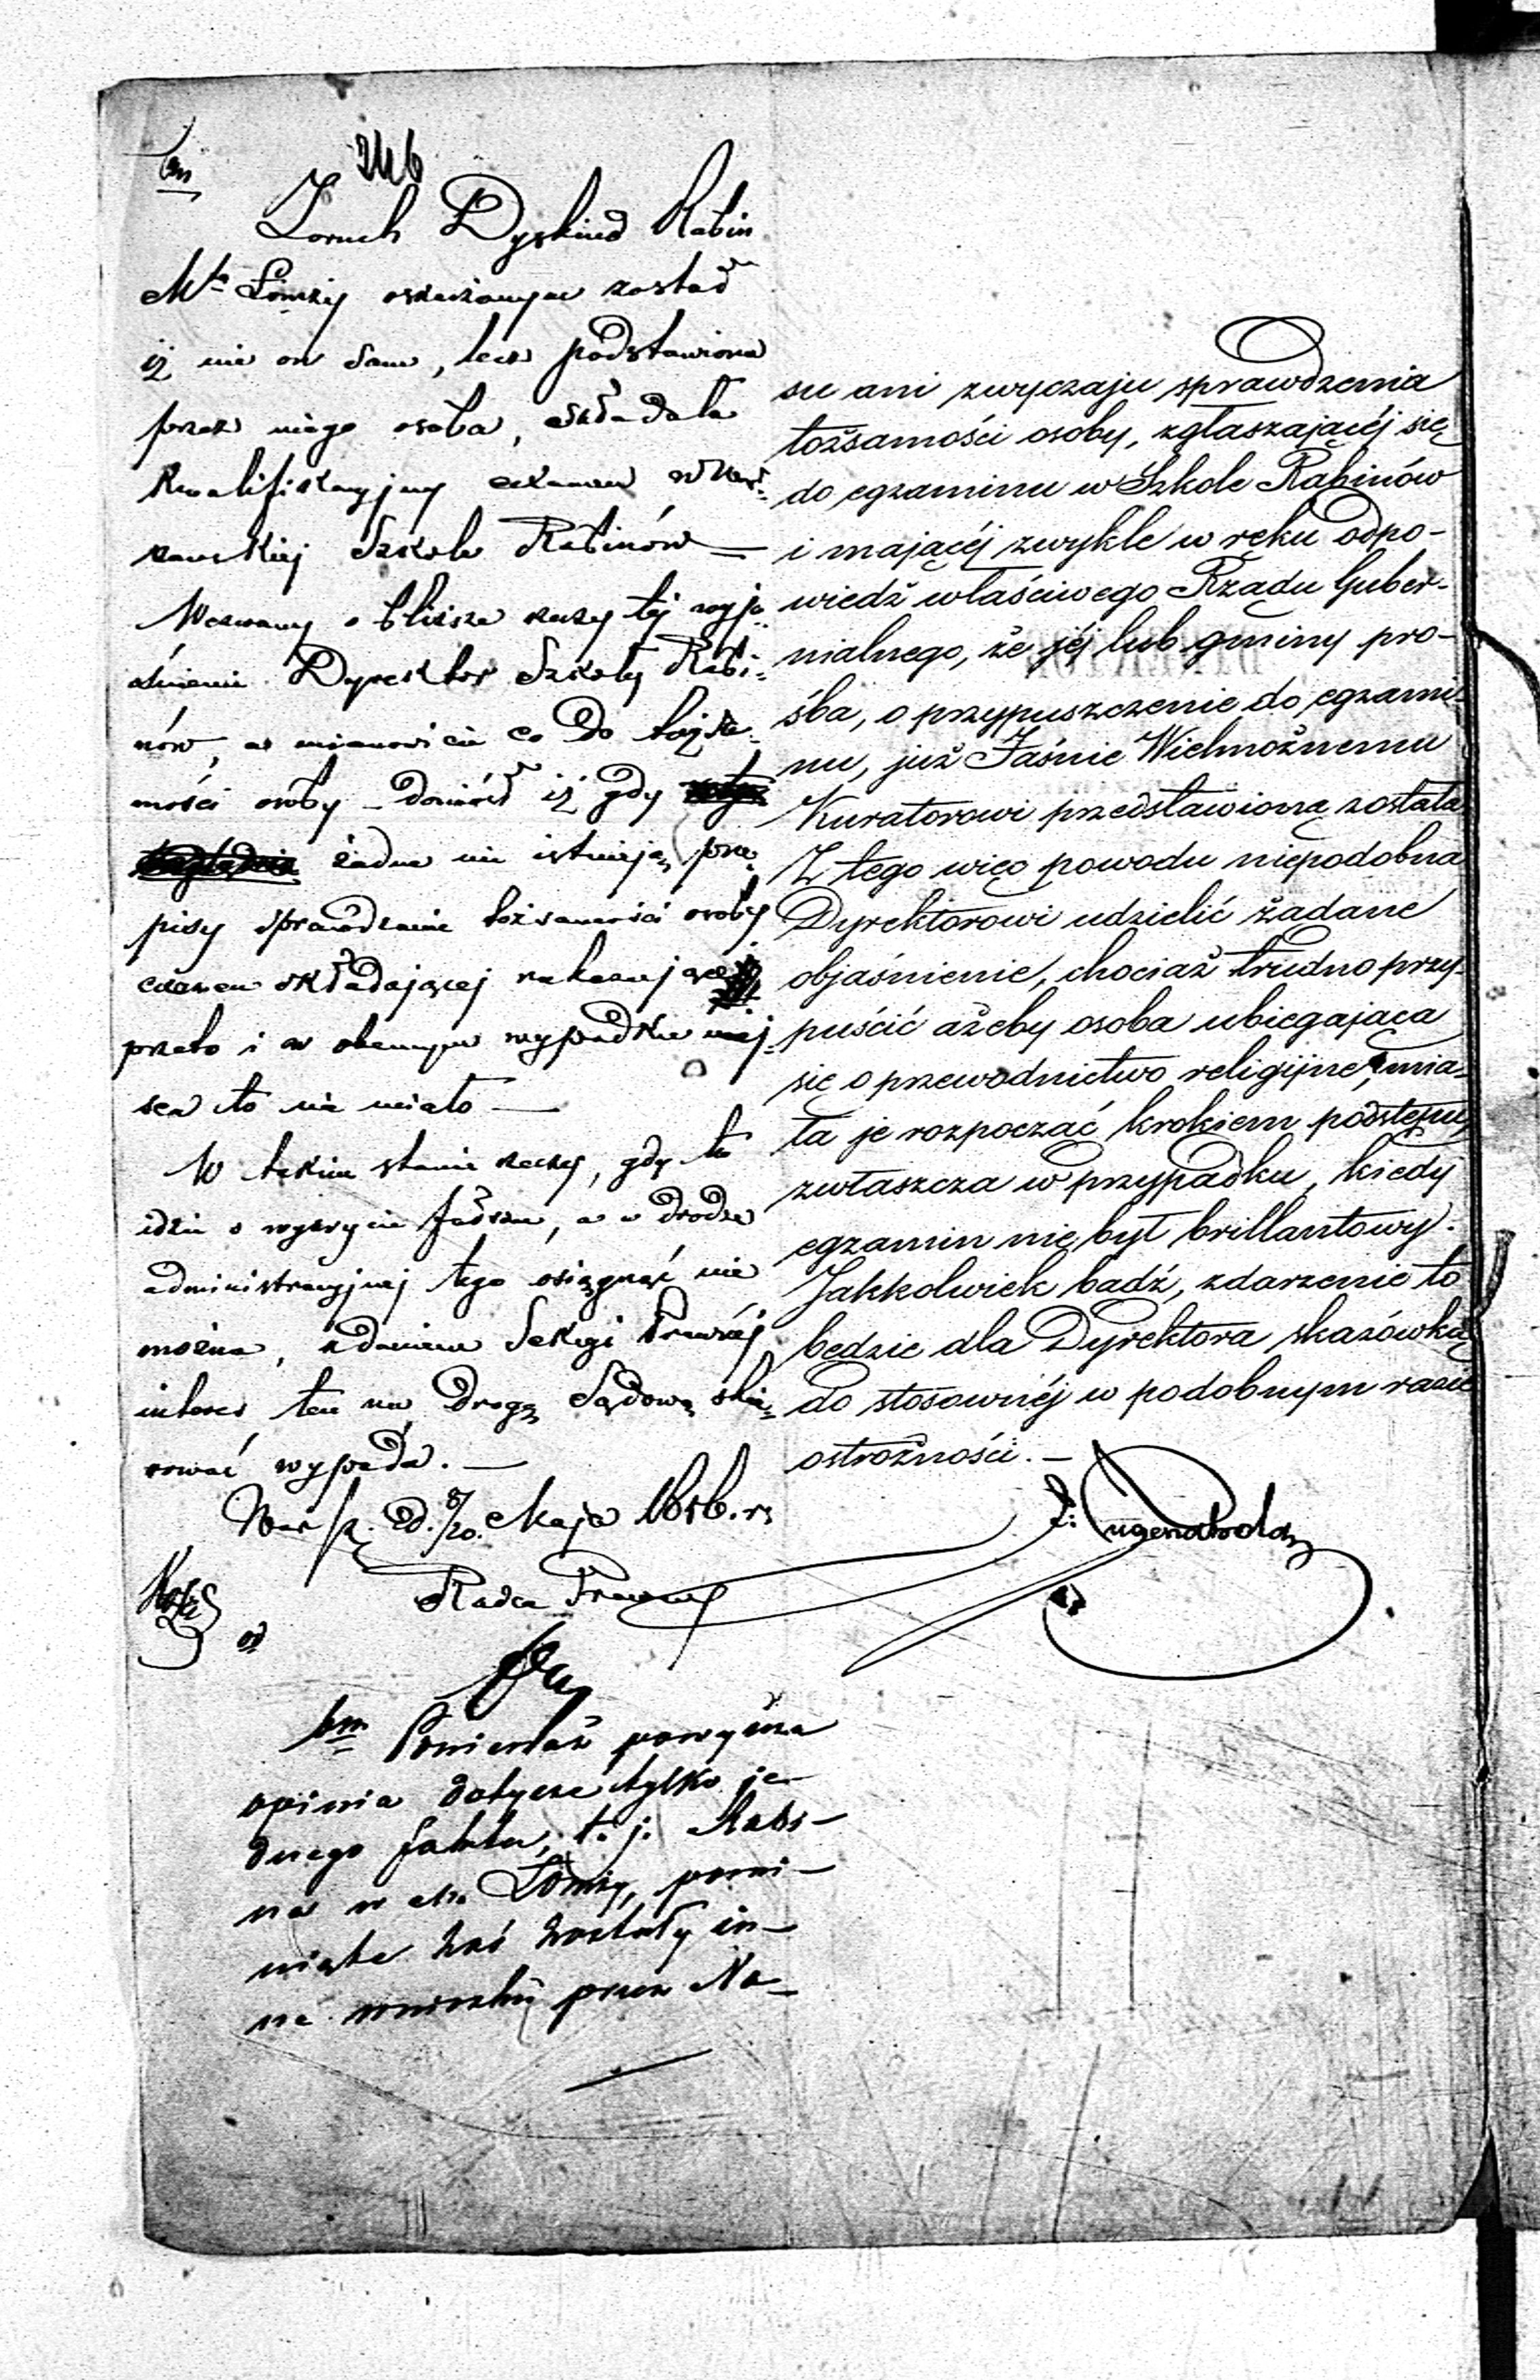 246
Zoruch Dyskind Rabin
Mta Łomży oskarżonym został
iż nie on sam, lecz podstawiona
przez niego osoba, składała
kwalifikacyjny examen w War-
szawskiej Szkole Rabinów —
Wezwany o bliższe rzeczy tej wyja-
śnienie Dyrektor Szkoły Rabi-
nów, a mianowicie co do tożsa-
mości osoby – doniósł iż gdy
żadne nie istnieją prze-
pisy sprawdzenie tożsamości osoby
examen składającej nakazujące
przeto i w obecnym wypadku miej-
sca to nie miało —
W takim stanie rzeczy, gdy tu
idzie o wykrycie fałszu, a w drodze
administracyjnej tego osiągnąć nie
można, zdaniem Sekcji Prawnéj
interes ten na drogę Sądową skie-
rować wypada. —
Warsz. d. 8/20 Maja 1856. r.
Radca Prawny
Ponieważ powyższa
opinia dotyczy tylko je-
dnego faktu, t. j. Rabi-
na w m. Łomży, pomi-
nięte zaś zostały in-
ne wnioski przez Na-
su ani zwyczaju sprawdzenia
tożsamości osoby, zgłaszającéj się
do egzaminu w Szkole Rabinów
i mającéj zwykle w ręku odpo-
wiedź właściwego Rządu Guber-
nialnego, że jéj lub gminy pro-
śba, o przypuszczenie do egzami-
nu, już Jaśnie Wielmożnemu
Kuratorowi przedstawioną została
Z tego więc powodu niepodobna
Dyrektorowi udzielić żądane
objaśnienie, chociaż trudno przy-
puścić ażeby osoba ubiegająca
się o przewodnictwo religijne, mia-
ła je rozpocząć krokiem podstępu,
zwłaszcza w przypadku, kiedy
egzamin nie był brillantowy.
Jakkolwiek bądź, zdarzenie to
będzie dla Dyrektora skazówką
do stosownéj w podobnym razie
ostrożności. —